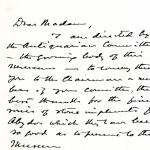 Dear Madam,
I am directed by
the Antiquarian Committee
– the governing body of this
museum – to convey through
you to the Chairman & mem-
bers of your committee, the
best thanks for the fine
series of stone vases from
Abydos which they have been
so good as to present to the
Museum